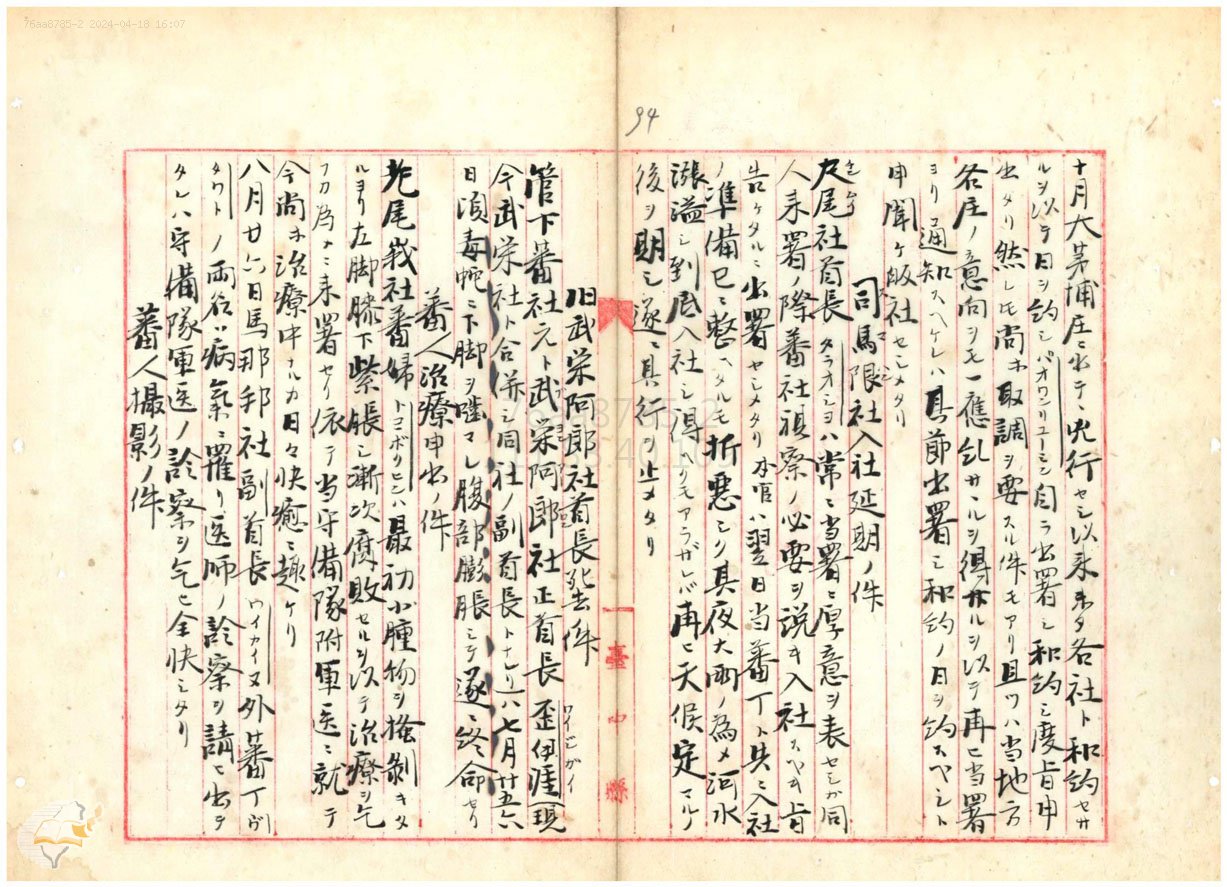 76aa8785-2 2024-04-18 16:07
94
十月大茅埔庄ニ出テ、兇行セシ以来未タ各社ト和約セサ
ルヲ以テ日ヲ約シパオワンリユーミン自ラ出署シ和約シ度旨申
出タリ然レモ尚ホ取調ヲ要スル件モアリ且ツハ当地方
各庄ノ意向ヲモ一應乱サヽルヲ得サルヲ以テ再ヒ当署
ヨリ通知スヘケレハ其節出署シ和約ノ日ヲ約スヘシト
申聞ケ皈社セシメタリ
司馬限社入社延期ノ件
尾尾社酋長タラオシヨハ常ニ当署ニ厚意ヲ表セシガ同
人来署ノ際蕃社視察ノ必要ヲ説キ入社スヘキ旨
告ケタルニ出署セシメタリ本官ハ翌日当蕃丁ト共ニ入社
ノ準備已ニ整ヘタルモ折悪シク其夜大雨ノ為メ河水
漲溢シ到底入社シ得ヘクモアラザレバ再ヒ天候定マル
後ヲ期シ遂ニ其行ヲ止メタリ
旧武栄阿郎社酋長死去ノ件
管下蕃社元ト武栄阿郎社正酋長歪伊ワイ(現
今武栄社ト合併シ同社ノ副酋長トナレリ)ハ七月廿五六
日頃毒蛇ニ下脚ヲ嗑マレ腹部膨脹シテ遂ニ終命セリ
蕃人治療申出ノ件
老尾峩社蕃婦トヨボクヒンハ最初小腫物ヲ掻剝キタ
ルヨリ左脚膝下紫脹シ漸次腐敗セルヲ以テ治療ヲ乞
フカ為メニ来署セリ依テ当守備隊附軍医ニ就テ
今尚ホ治療中ナルカ日々快癒ニ趣ケリ
八月廿六日馬那邦社副酋長ワイカイ又外蕃丁
タワトノ両名ハ病氣ニ罹リ医師ノ診察ヲ請ヒ出テ
タレハ守備隊軍医ノ診察ヲ乞ヒ全快シタリ
蕃人撮影ノ件
臺中縣